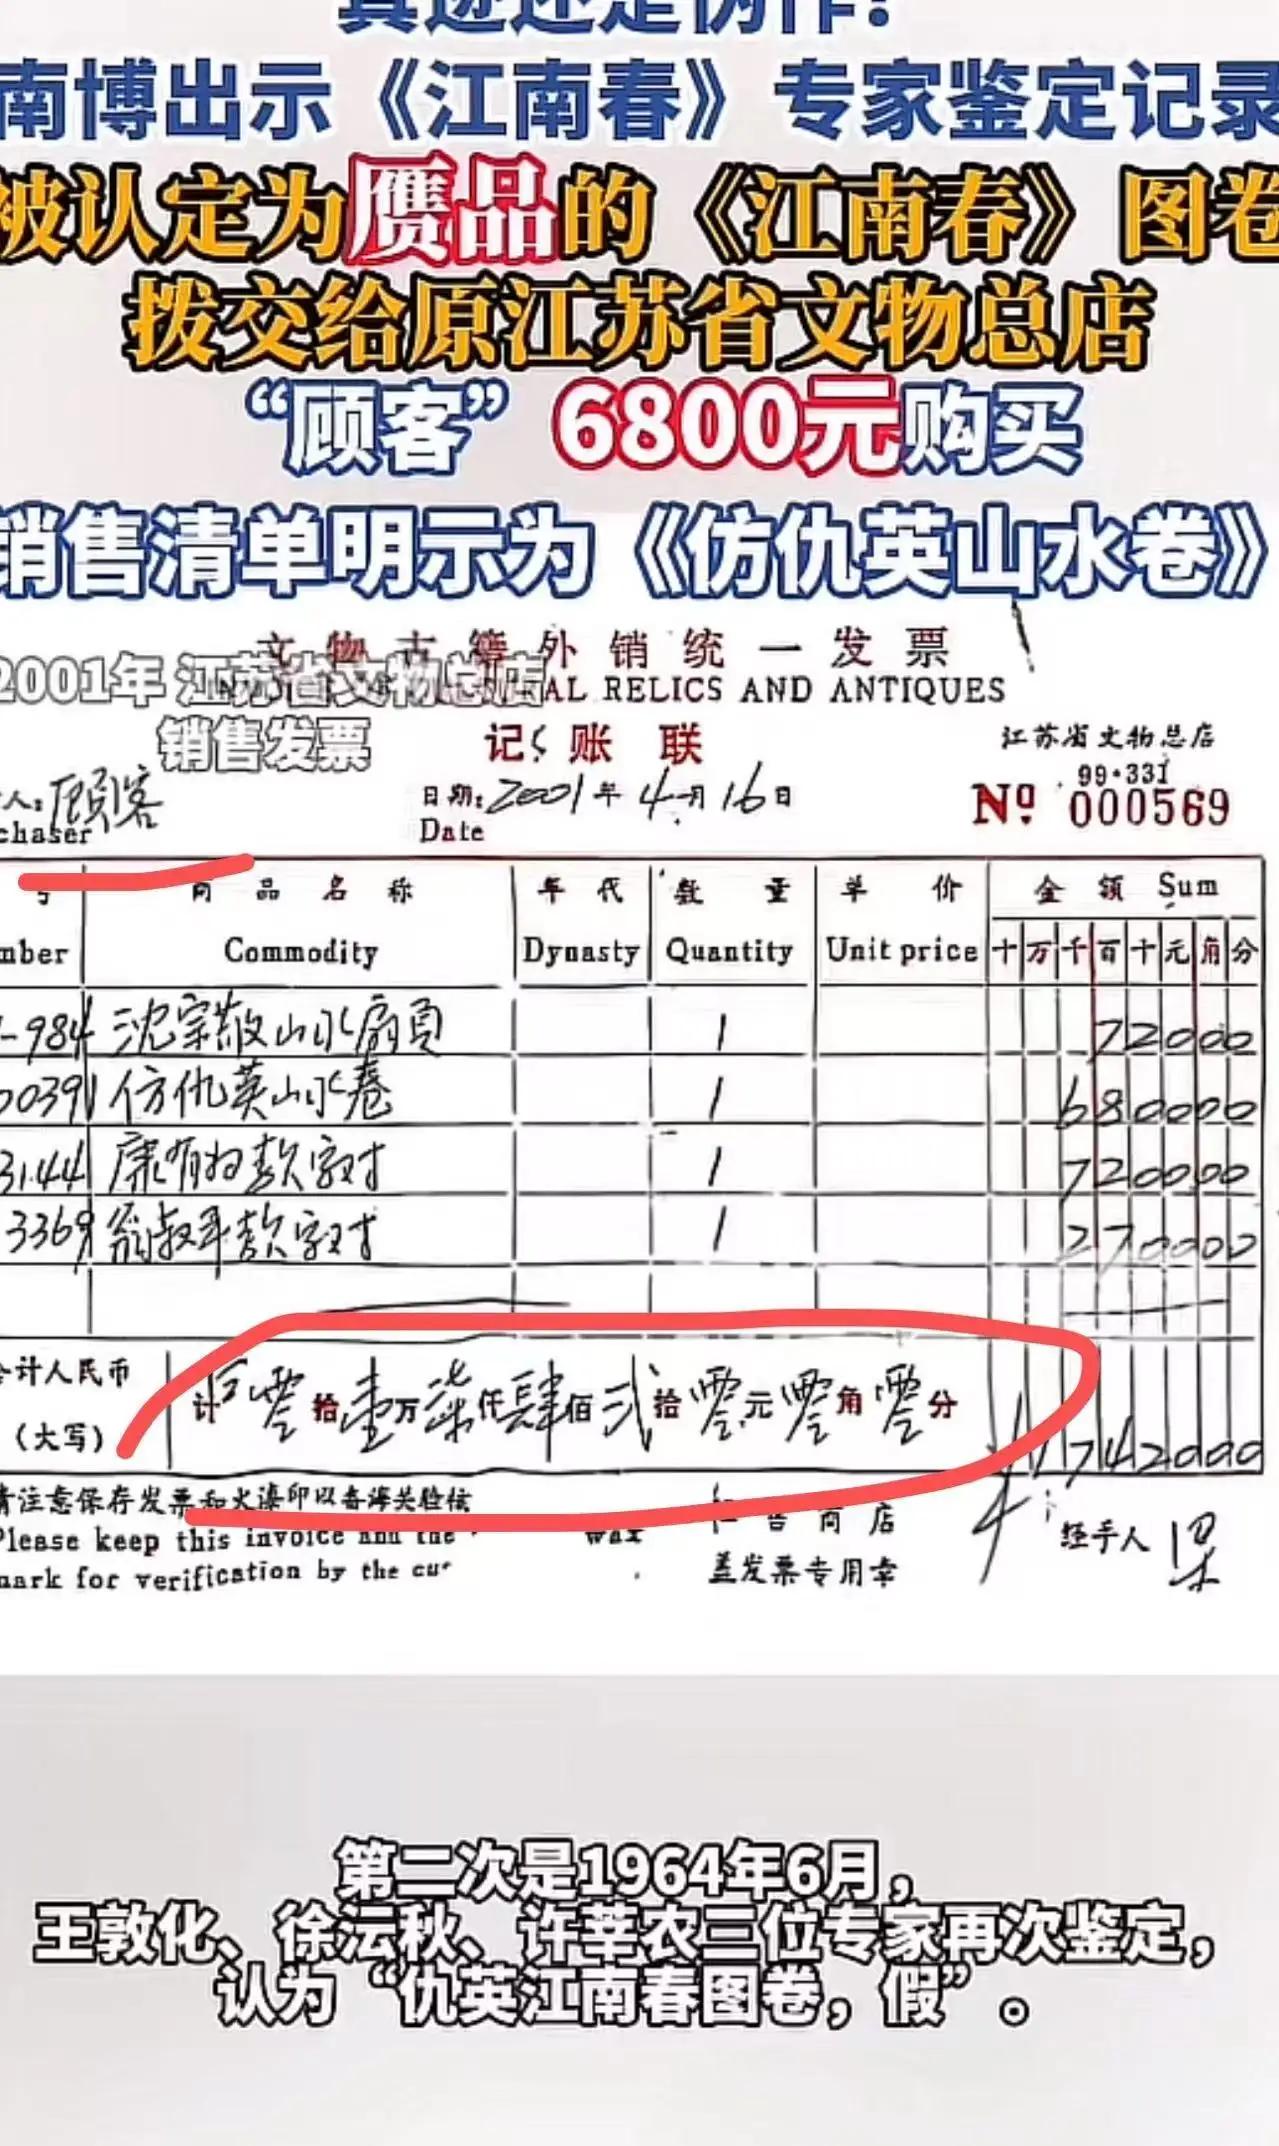 真迹还是伪作?
南博出示《江南春》专家鉴定记录
被认定为赝品的《江南春》图卷
拨交给原江苏省文物总店
“顾客”6800元购买
销售清单明示为《仿仇英山水卷》
文物古籍外销统一发票
RAL RELICS AND ANTIQUES
2001年 江苏省文物总店
销售发票
记账联
江苏省文物总店
99·331
人:顾客
chaser
日期:2001年4月16日
Date
Nº 000569
号 商品名称 年代 数量 单价 金额 Sum
mber Commodity Dynasty Quantity Unit price 十万千百十元角分
-984 沈宗敬山水扇页 1 72000
00391 仿仇英山水卷 1 680000
3144 康有为款字对 1 720000
3369 翁叔平款字对 1 270000
合计人民币
(大写)
计 零拾壹万柒仟肆佰弍拾零元零角零分 1742000
请注意保存发票和火漆印以备海关验放
Please keep this invoice and the wax
mark for verification by the cu
售商店
盖发票专用章
经手人 梁
第二次是1964年6月,
王敦化、徐沄秋、许莘农三位专家再次鉴定,
认为“仇英江南春图卷,假”。